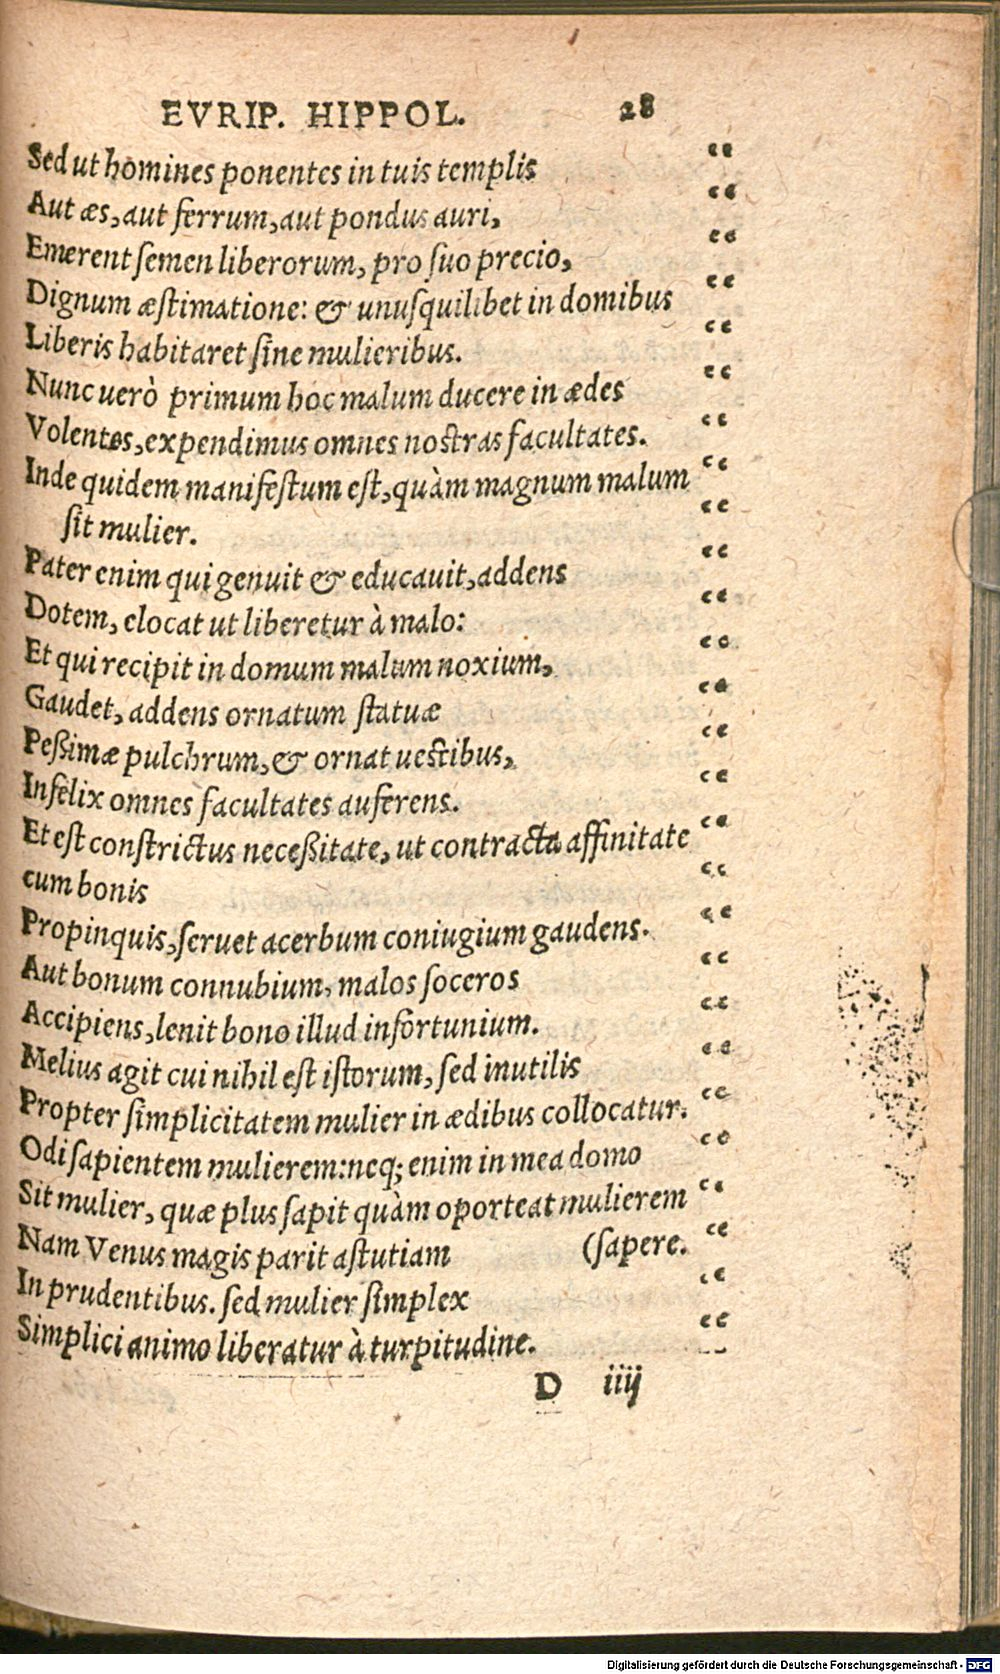 EVRIP. HIPPOL. 28
Sed ut homines ponentes in tuis templis “
Aut æs, aut ferrum, aut pondus auri, “
Emerent semen liberorum, pro suo precio, “
Dignum æstimatione: & unusquilibet in domibus “
Liberis habitaret sine mulieribus. “
Nunc uerò primum hoc malum ducere in ædes “
Volentes, expendimus omnes nostras facultates. “
Inde quidem manifestum est, quàm magnum malum “
sit mulier. “
Pater enim qui genuit & educauit, addens “
Dotem, elocat ut liberetur à malo: “
Et qui recipit in domum malum noxium, “
Gaudet, addens ornatum statuæ “
Peßimæ pulchrum, & ornat uestibus, “
Infelix omnes facultates auferens. “
Et est constrictus neceßitate, ut contracta affinitate “
cum bonis “
Propinquis, seruet acerbum coniugium gaudens. “
Aut bonum connubium, malos soceros “
Accipiens, lenit bono illud infortunium. “
Melius agit cui nihil est istorum, sed inutilis “
Propter simplicitatem mulier in ædibus collocatur. “
Odi sapientem mulierem: neq; enim in mea domo “
Sit mulier, quæ plus sapit quàm oporteat mulierem “
Nam Venus magis parit astutiam (sapere. “
In prudentibus. sed mulier simplex “
Simplici animo liberatur à turpitudine. “
D iiij
Digitalisierung gefördert durch die Deutsche Forschungsgemeinschaft - DFG